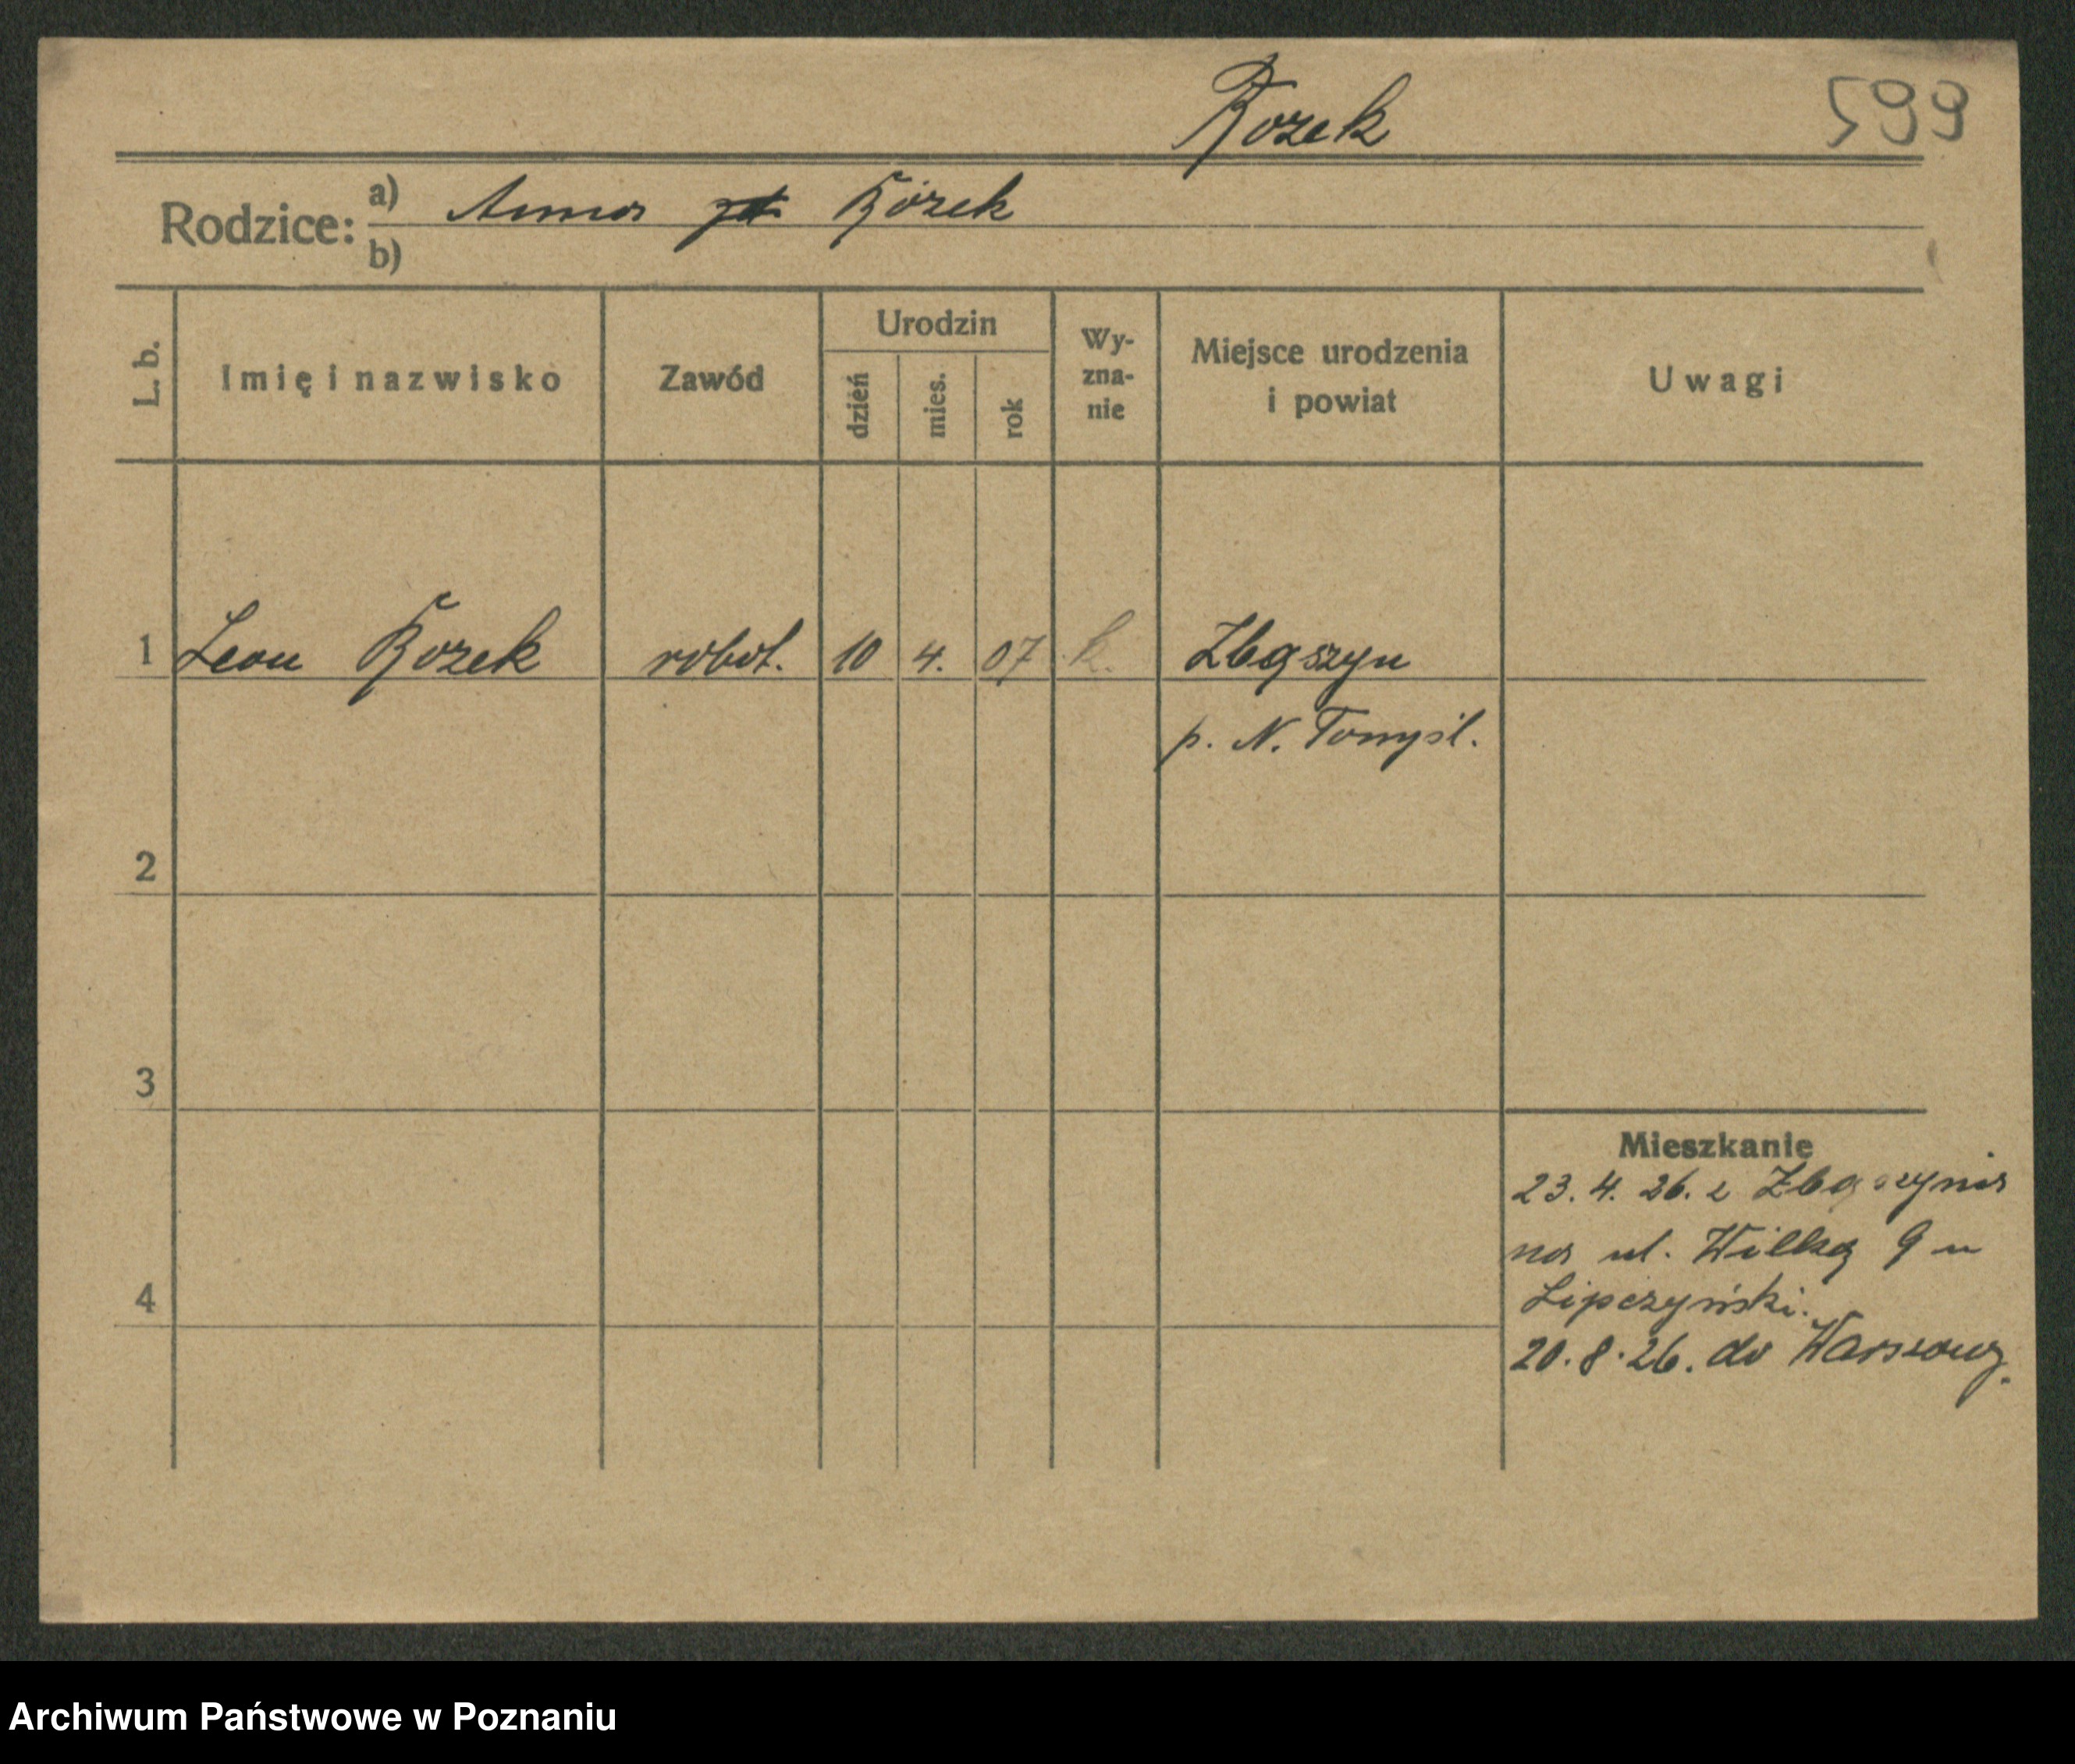 Rozek
599
Rodzice: a) Anna Rozek
b)
L. b.
Imię i nazwisko
Zawód
Urodzin
dzień
mies.
rok
Wy-
zna-
nie
Miejsce urodzenia
i powiat
Uwagi
1 Leon Rozek robot. 10 4. 07 k. Zbąszyn
p. N. Tomyśl.
2
3
4
Mieszkanie
23. 4. 26. z Zbąszynia
na ul. Wilką 9 u
Lipczyński.
20. 8. 26. do Warszawy.
Archiwum Państwowe w Poznaniu